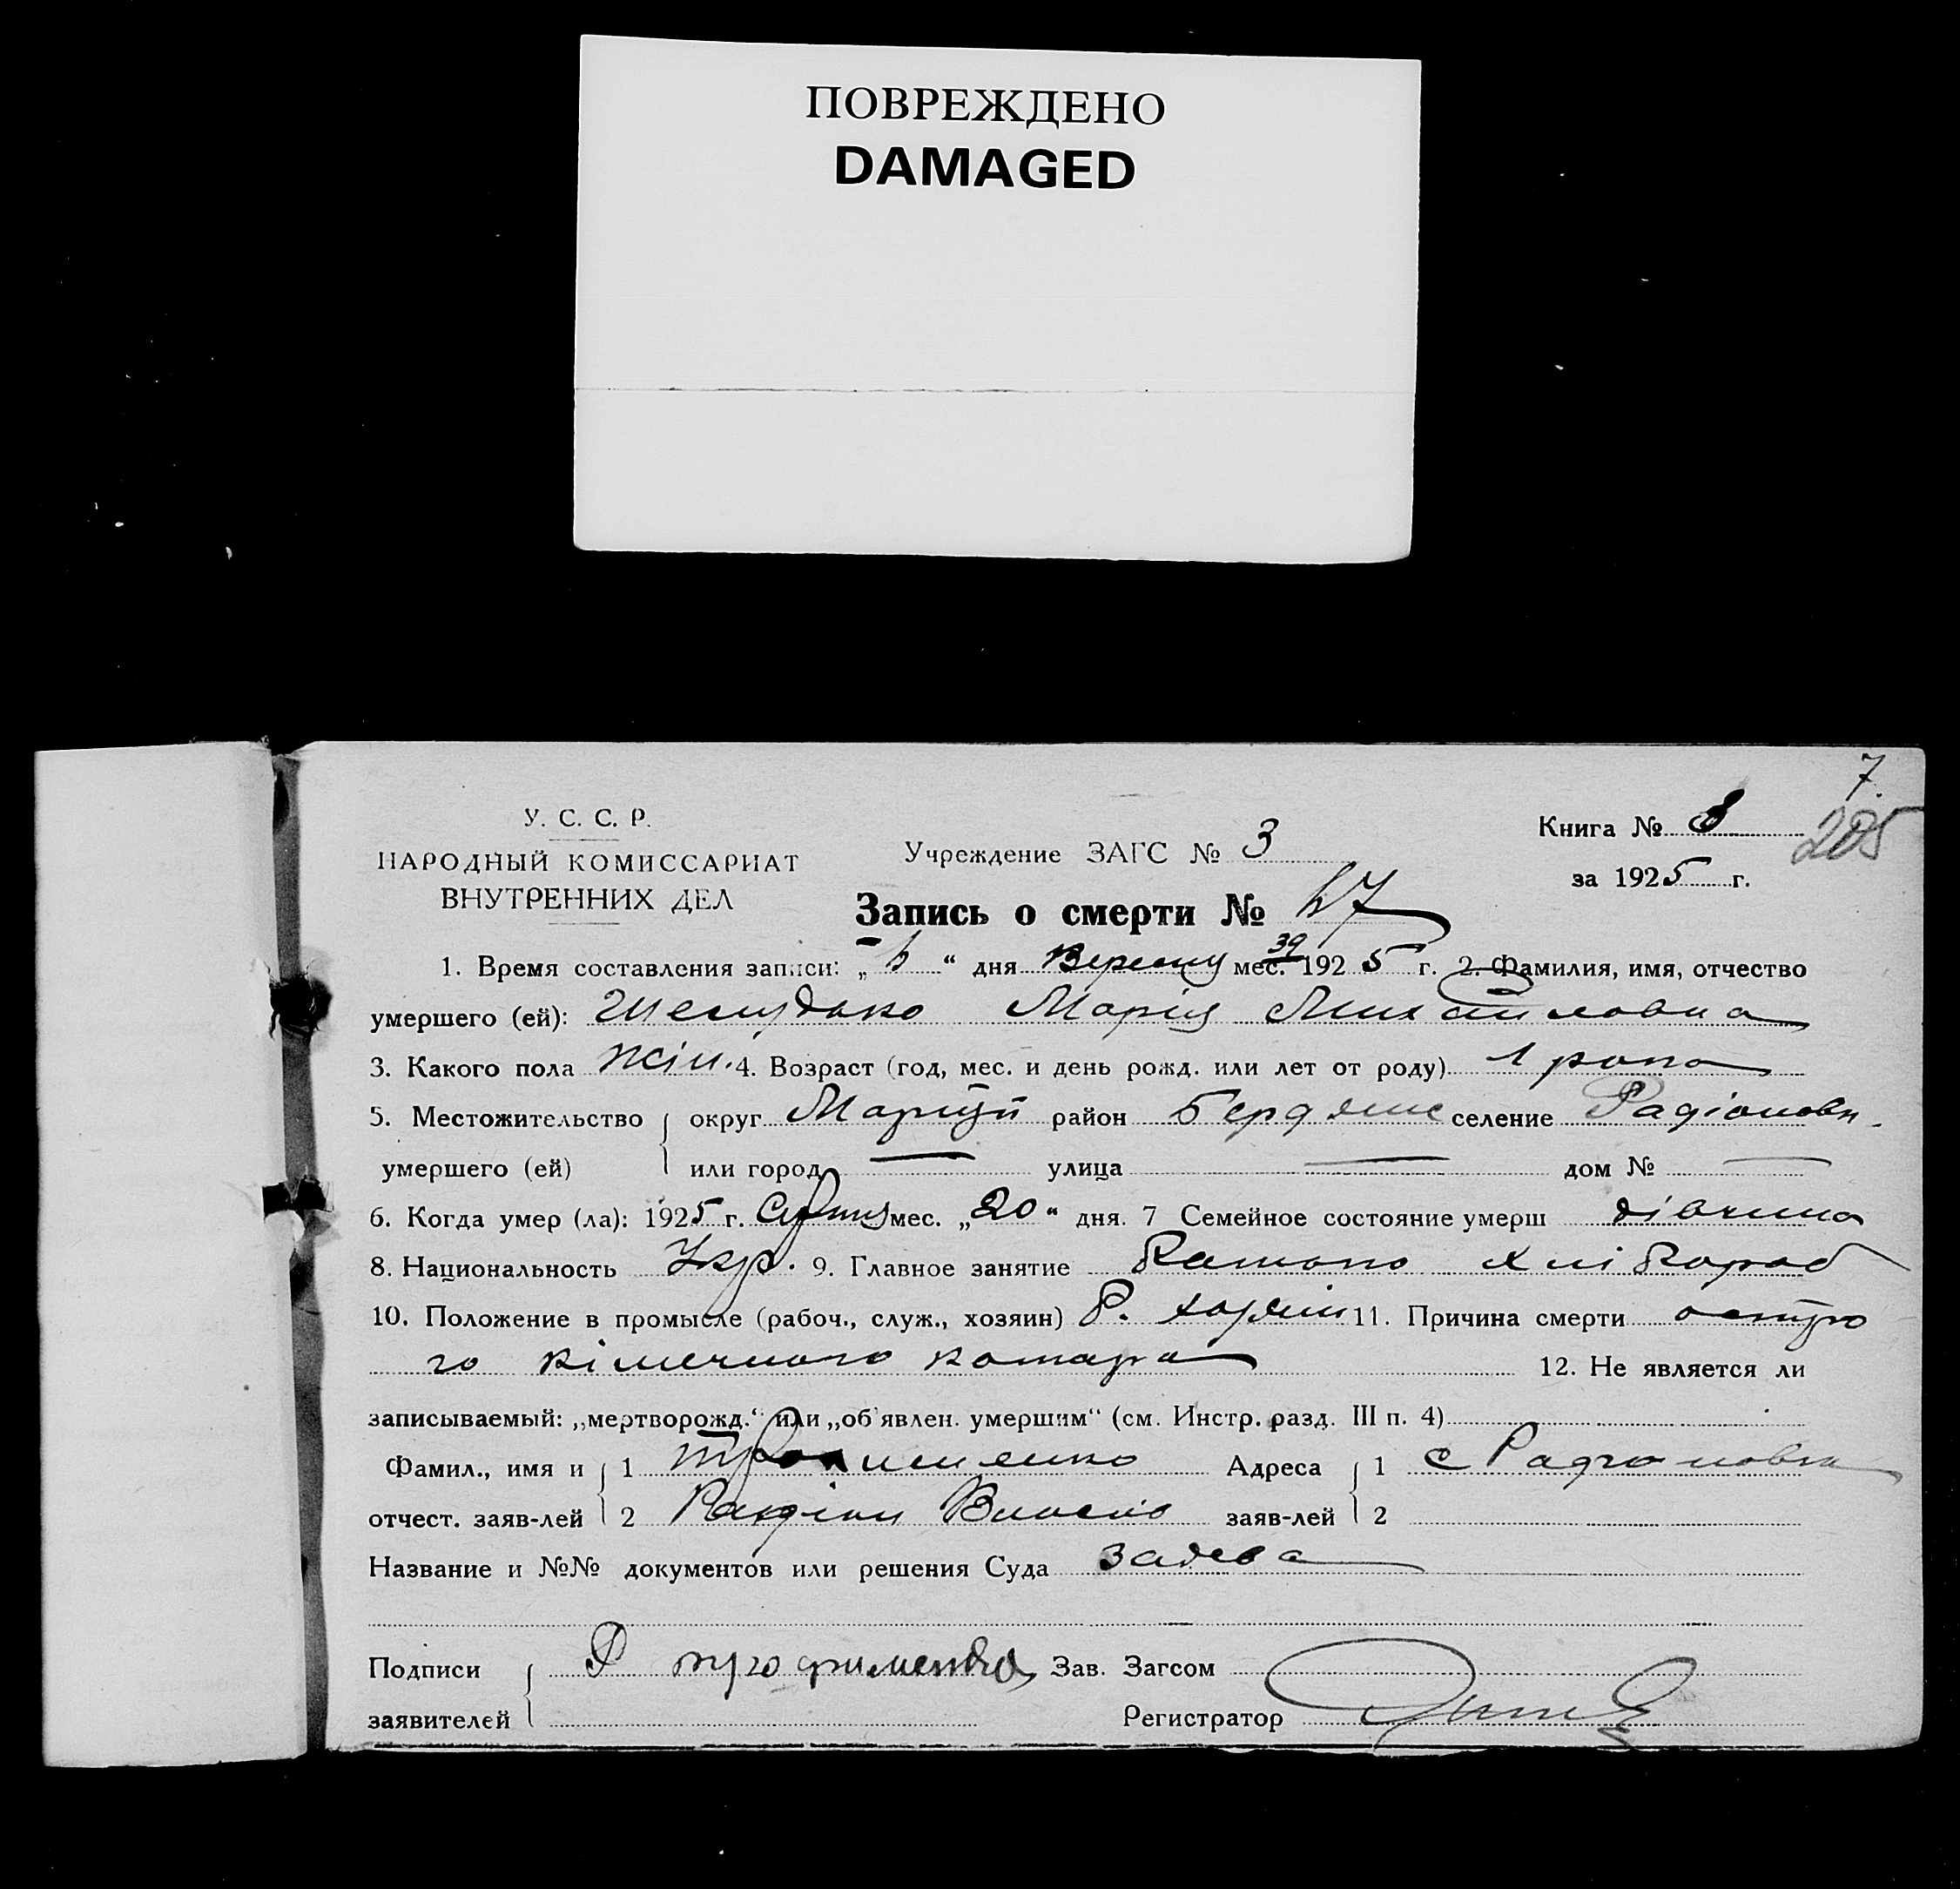 ПОВРЕЖДЕНО
DAMAGED
7.
205
У. С. С. Р.
НАРОДНЫЙ КОМИССАРИАТ
ВНУТРЕННИХ ДЕЛ
Учреждение ЗАГС № 3
Книга № 8
за 1925 г.
Запись о смерти № 47
39
1. Время составления записи: „ “ дня Вересня мес. 1925 г. 2. Фамилия, имя, отчество
умершего (ей): Шелудько Марія Михайловна
3. Какого пола жін. 4. Возраст (год, мес. и день рожд. или лет от роду) 1 рока
5. Местожительство округ Маріуп район Бердянс селение Радіоновк
умершего (ей) или город — улица — дом № —
6. Когда умер (ла): 1925 г. Серпня мес. „20“ дня. 7 Семейное состояние умерш дівчина
8. Национальность Укр. 9. Главное занятие Батько хлібороб
10. Положение в промысле (рабоч., служ., хозяин) Р. хозяін 11. Причина смерти остро
го кішечного катара 12. Не является ли
записываемый: „мертворожд.“ или „об'явлен. умершим“ (см. Инстр. разд. III п. 4)
Фамил., имя и 1 Трофименко Адреса 1 с Радіоновка
отчест. заяв-лей 2 Радіон Власів заяв-лей 2
Название и №№ документов или решения Суда заява
Подписи Р трофименко Зав. Загсом
заявителей Регистратор